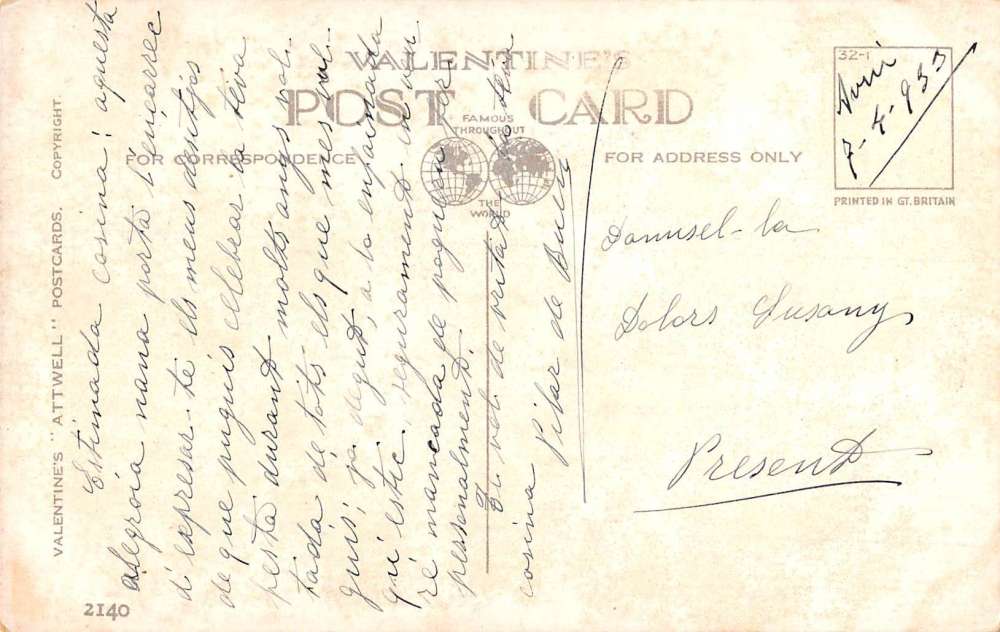 VALENTINE'S
POST CARD
FAMOUS
THROUGHOUT
THE
WORLD
FOR CORRESPONDENCE
FOR ADDRESS ONLY
32-1
PRINTED IN GT. BRITAIN
VALENTINE'S "ATTWELL" POSTCARDS. COPYRIGHT.
2140
Avui
7-4-933
Estimada cosina: aquesta
alegroia nana porta l'encarrec
d'expresar-te els meus desitjos
de que puguis celebrar la teva
festa durant molts anys voltada
de tots els que mes vulguis;
ja degut, a lo enfainada
qu'estic, seguramen
re mancada de poguer
personalment.
Et vol de veritat la teva
cosina Pilar de
Damisel-la
Dolors Susany
Present